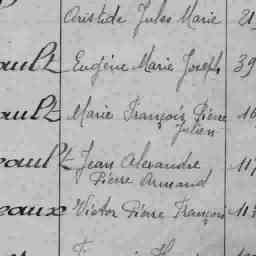 Aristide Jules Marie 21
ault Eugène Marie Joseph 39
ault Marie François Pierre 16
Julien
eault Jean Alexandre 117
Pierre Armand
eaux Victor Pierre François 113